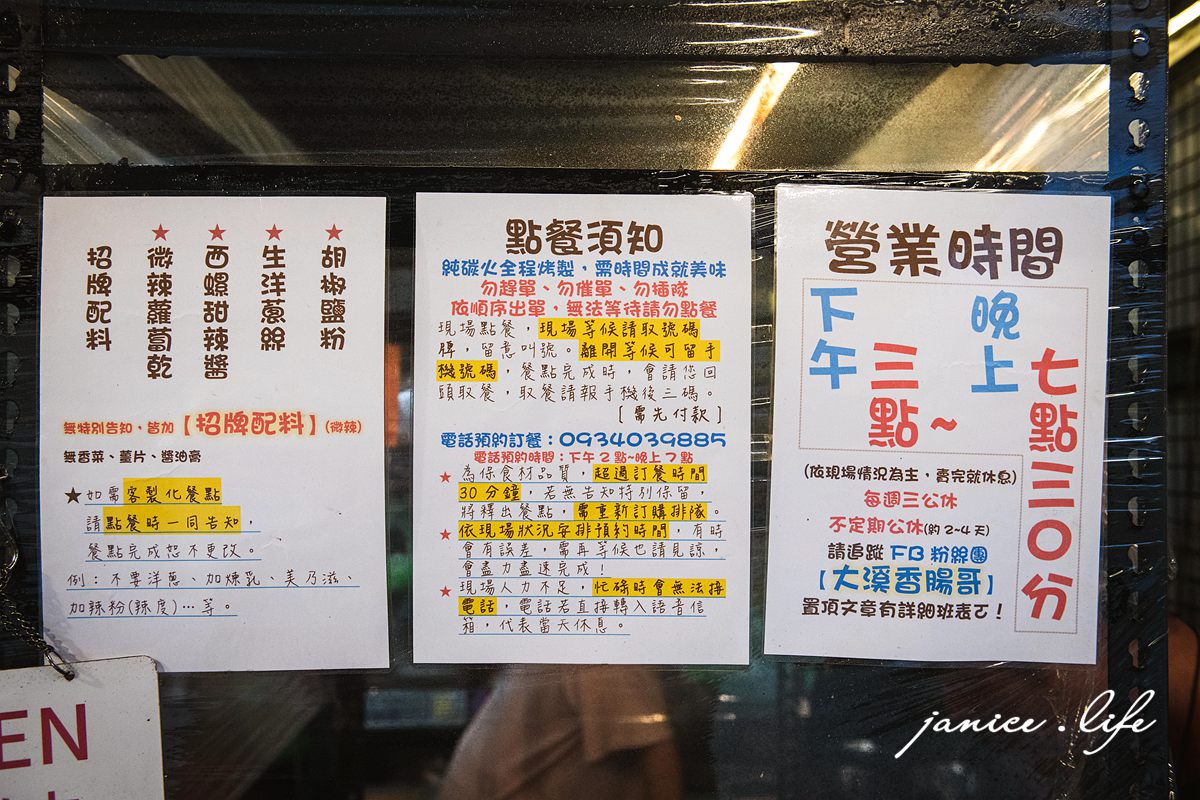 招牌配料
★微辣蘿蔔乾
★西螺甜辣醬
★生洋蔥絲
★胡椒鹽粉
無特別告知，皆加【招牌配料】(微辣)
無香菜、薑片、醬油膏
★如需客製化餐點
請點餐時一同告知，
餐點完成恕不更改。
例：不要洋蔥、加煉乳、美乃滋、
加辣粉(辣度)…等。
點餐須知
純碳火全程烤製，需時間成就美味
勿趕單、勿催單、勿插隊
依順序出單，無法等待請勿點餐
現場點餐，現場等候請取號碼
牌，留意叫號。離開等候可留手
機號碼，餐點完成時，會請您回
頭取餐，取餐請報手機後三碼。
[需先付款]
電話預約訂餐：0934039885
電話預約時間：下午2點~晚上7點
★為保食材品質，超過訂餐時間
30分鐘，若無告知特別保留，
將釋出餐點，需重新訂購排隊。
★依現場狀況安排預約時間，有時
會有誤差，需再等候也請見諒，
會盡力盡速完成！
★現場人力不足，忙碌時會無法接
電話，電話若直接轉入語音信
箱，代表當天休息。
營業時間
下午
三點~
晚上
七點三〇分
(依現場情況為主，賣完就休息)
每週三公休
不定期公休(約2~4天)
請追蹤 FB 粉絲團
【大溪香腸哥】
置頂文章有詳細班表ㄛ！
EN
janice.life